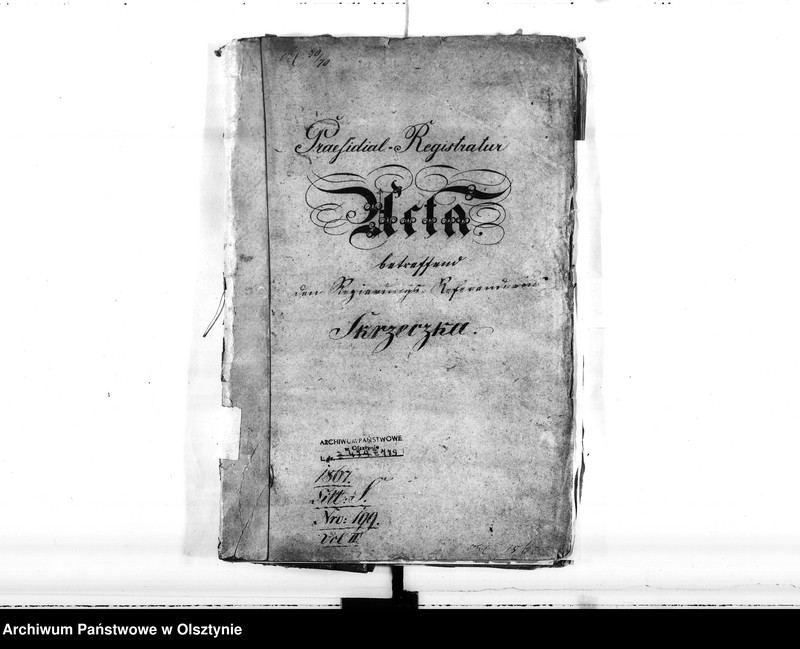 Praesidial-Registratur
Acta
betreffend
den Regierungs-Referendarius
Skrzeczka.
ARCHIWUM PAŃSTWOWE
w Olsztynie
1867.
Titl: S.
Nro: 199.
Vol II
Archiwum Państwowe w Olsztynie